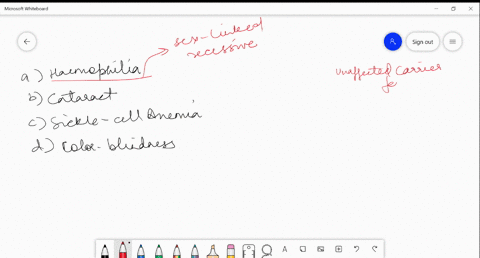 Microsoft Whiteboard
Sign out
sex-linked
recessive
a) Haemophilia
b) Cataract
c) Sickle-cell Anemia
d) Color-blindness
unaffected carrier
fe